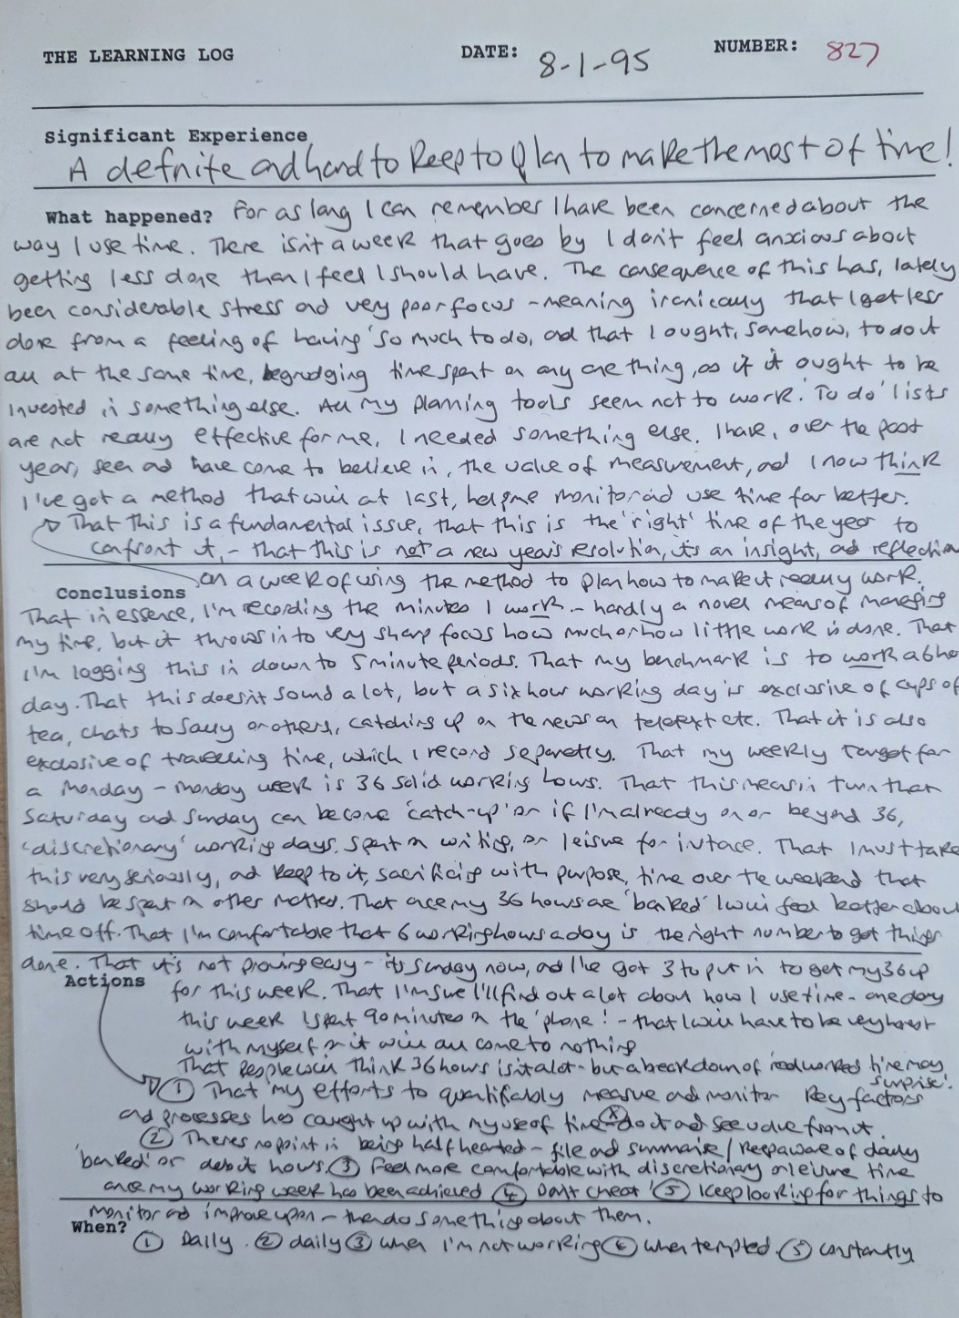 THE LEARNING LOG DATE: 8-1-95 NUMBER: 827
Significant Experience
A definite and hard to keep to plan to make the most of time!
What happened? For as long I can remember I have been concerned about the
way I use time. There isn't a week that goes by I don't feel anxious about
getting less done than I feel I should have. The consequence of this has, lately
been considerable stress and very poor focus - meaning ironically that I get less
done from a feeling of having 'so much to do, and that I ought, somehow, to do it
all at the same time, begrudging time spent on any one thing, as if it ought to be
invested in something else. All my planning tools seem not to work. 'To do' lists
are not really effective for me, I needed something else. I have, over the past
year, seen and have come to believe in, the value of measurement, and I now think
I've got a method that will at last, help me monitor and use time far better.
That this is a fundamental issue, that this is the 'right' time of the year to
confront it, - that this is not a new year's resolution, it's an insight, and reflection
on a week of using the method to plan how to make it really work.
Conclusions
That in essence, I'm recording the minutes I work - hardly a novel means of managing
my time, but it throws into very sharp focus how much or how little work is done. That
I'm logging this in down to 5 minute periods. That my benchmark is to work a 6 hr
day. That this doesn't sound a lot, but a six hour working day is exclusive of cups of
tea, chats to Sally or others, catching up on the news on teletext etc. That it is also
exclusive of travelling time, which I record separetly. That my weekly target for
a Monday - Monday week is 36 solid working hours. That this means in turn that
Saturday and Sunday can become 'catch-up' or if I'm already on or beyond 36,
'discretionary' working days. spent on writing, or leisure for instance. That I must take
this very seriously, and keep to it, sacrificing with purpose, time over the weekend that
should be spent on other matters. That once my 36 hours are 'banked' I will feel better about
time off. That I'm comfortable that 6 working hours a day is the right number to get things
done. That it's not proving easy - it's Sunday now, and I've got 3 to put in to get my 36 up
Actions
for this week. That I'm sure I'll find out a lot about how I use time - one day
this week I spent 90 minutes on the 'phone! - that I will have to be very honest
with myself or it will all come to nothing
That people will think 36 hours isn't a lot - but a breakdown of real worked time may
surprise!
① That my efforts to quantifiably measure and monitor key factors
and processes has caught up with my use of time - do it and see value from it.
② There's no point in being half hearted - file and summarise / keep aware of daily
'banked' or debit hours. ③ Feel more comfortable with discretionary or leisure time
once my working week has been achieved ④ Don't cheat ⑤ Keep looking for things to
monitor and improve upon - then do something about them.
When?
① Daily. ② daily ③ when I'm not working ④ when tempted. ⑤ constantly